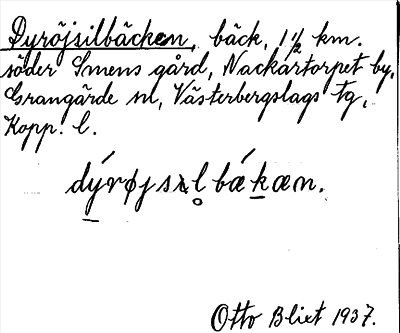 Dyröjsilbäcken, bäck, 1½ km.
söder Smens gård, Nackartorpet by,
Grangärde sn, Västerbergslags tg,
Kopp. l.
dýrøjsılbǽkæn.
Otto Blixt 1937.